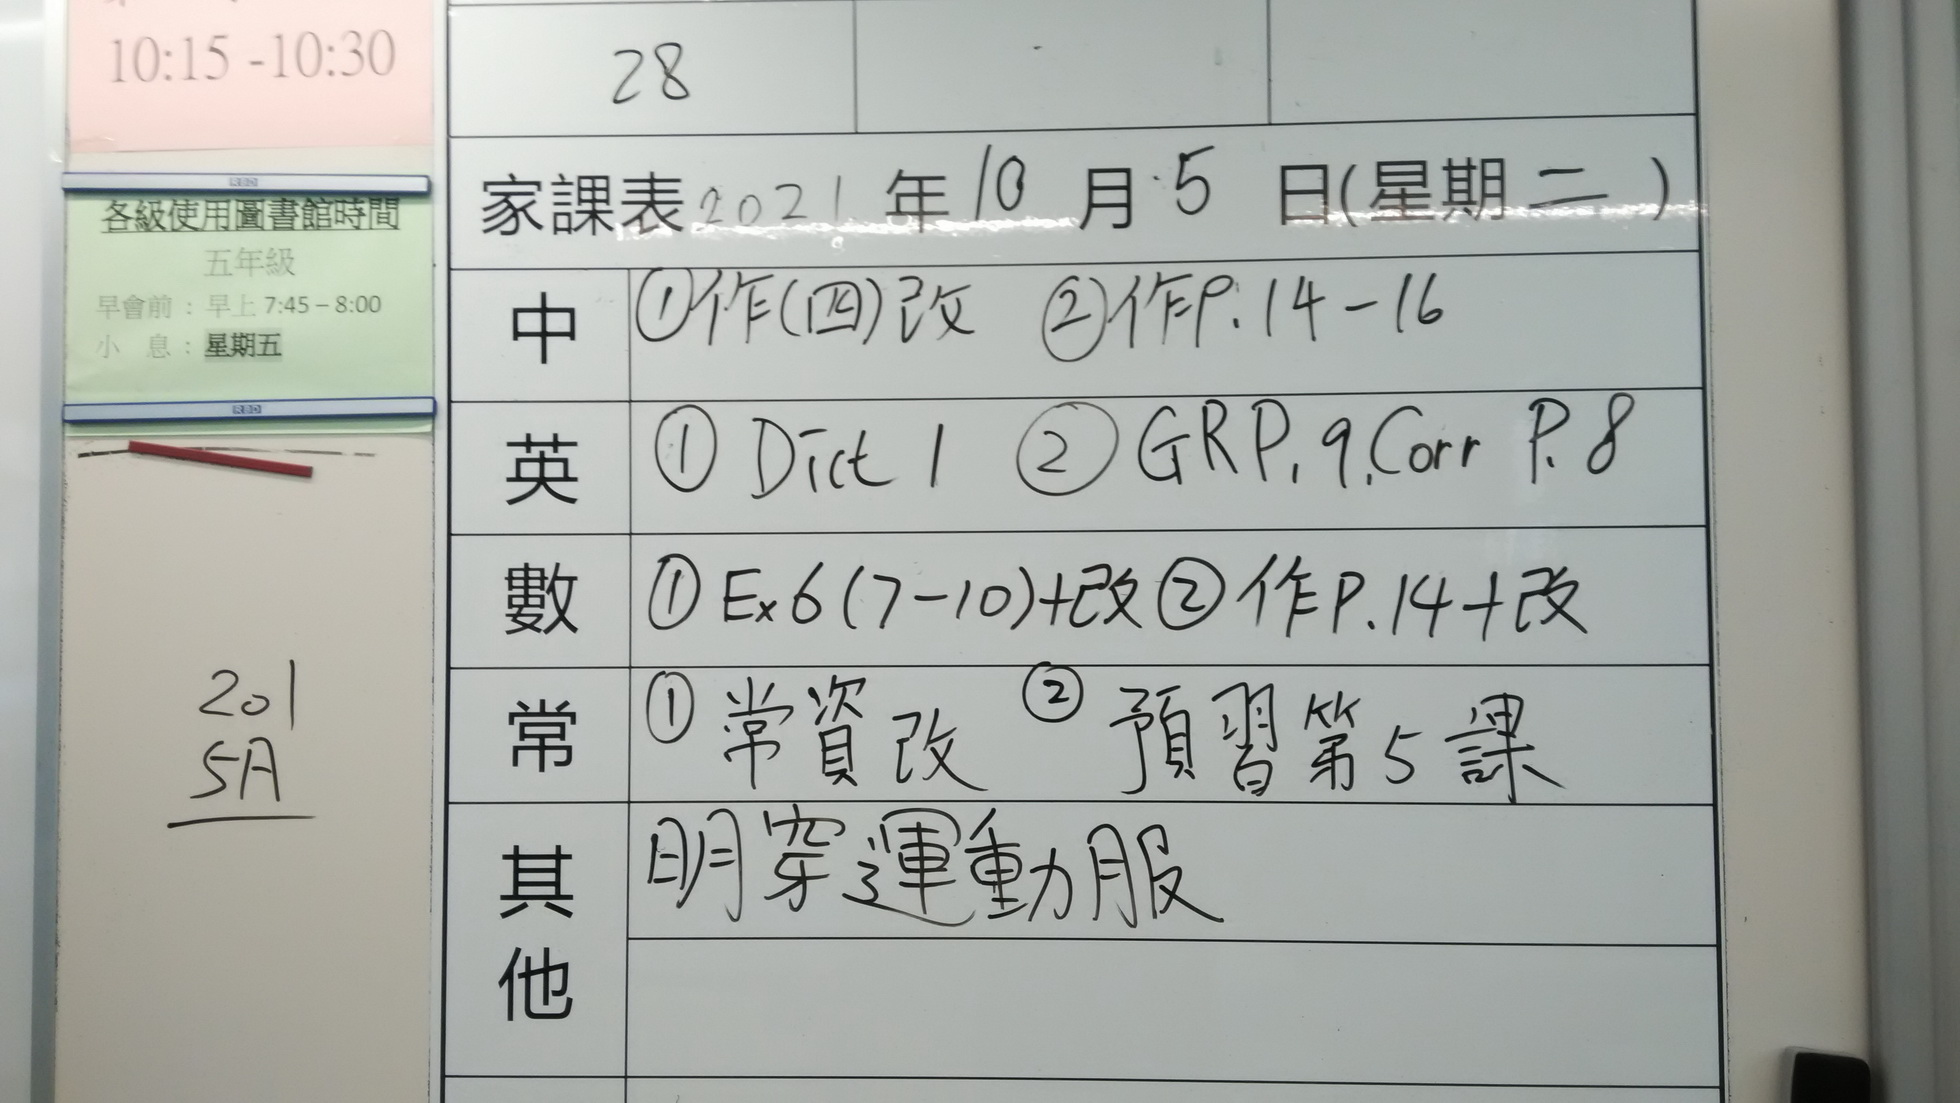 10:15 -10:30
各級使用圖書館時間
五年級
早會前：早上 7:45 – 8:00
小 息：星期五
201
5A
28
家課表 2021 年 10 月 5 日(星期二)
中 ①作(四)改 ②作P.14-16
英 ① Dict 1 ② GR P.9, Corr P.8
數 ① Ex6(7-10)+改 ② 作P.14+改
常 ① 常資改 ② 預習第5課
其他 明穿運動服